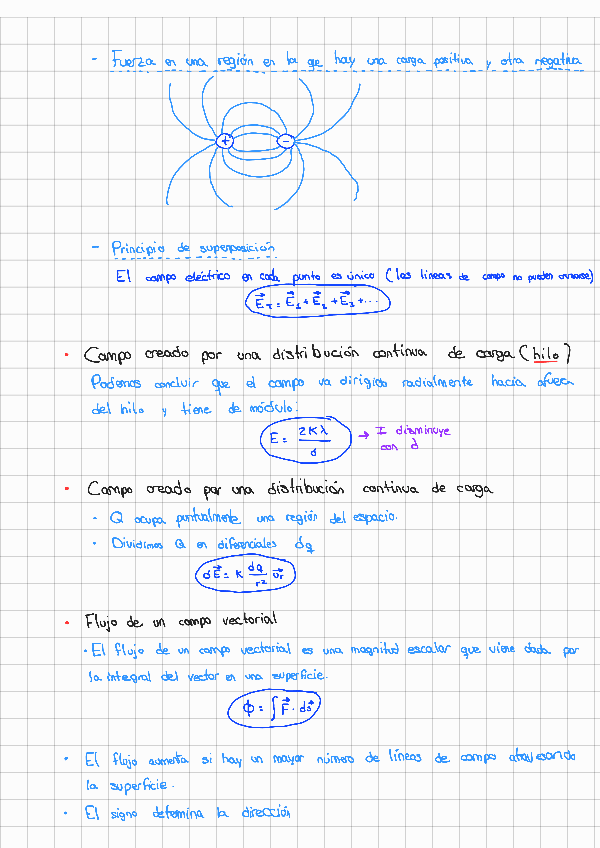 - Fuerza en una región en la qe hay una carga positiva y otra negativa
+ -
- Principio de superposición
El campo eléctrico en cada punto es único (las líneas de campo no pueden cruzarse)
E⃗T = E⃗1 + E⃗2 + E⃗3 + ...
• Campo creado por una distribución continua de carga (hilo)
Podemos concluir que el campo va dirigido radialmente hacia afuera
del hilo y tiene de módulo:
E = 2Kλ / d → I disminuye
con d
• Campo creado por una distribución continua de carga
• Q ocupa puntualmente una región del espacio.
• Dividimos Q en diferenciales dq
dE⃗ = K dq / r² u⃗r
• Flujo de un campo vectorial
• El flujo de un campo vectorial es una magnitud escalar que viene dada por
la integral del vector en una superficie.
ϕ = ∫ F⃗ · ds⃗
• El flujo aumenta si hay un mayor número de líneas de campo atravesando
la superficie.
• El signo determina la dirección